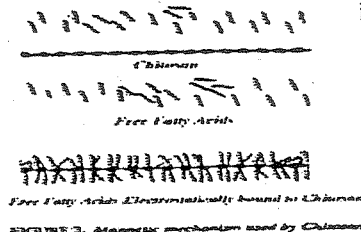 Chitosan
Free Fatty Acids
Free Fatty Acids Electrostatically bound to Chitosan
FIGURE 2. Magnetic mechanism used by Chitosan